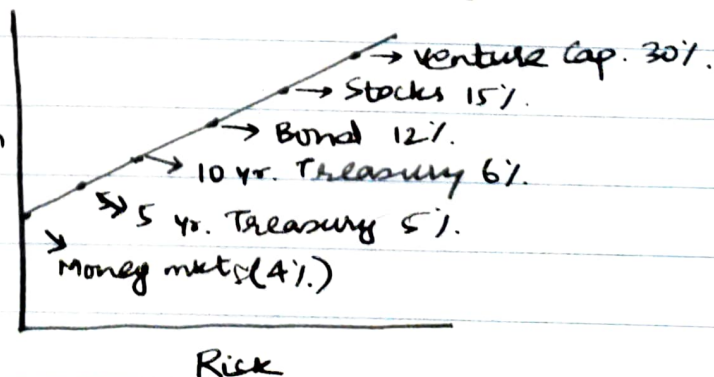 → Venture Cap. 30%.
→ Stocks 15%.
→ Bond 12%.
→ 10 yr. Treasury 6%.
→ 5 yr. Treasury 5%.
→ Money mkts (4%.)
Risk